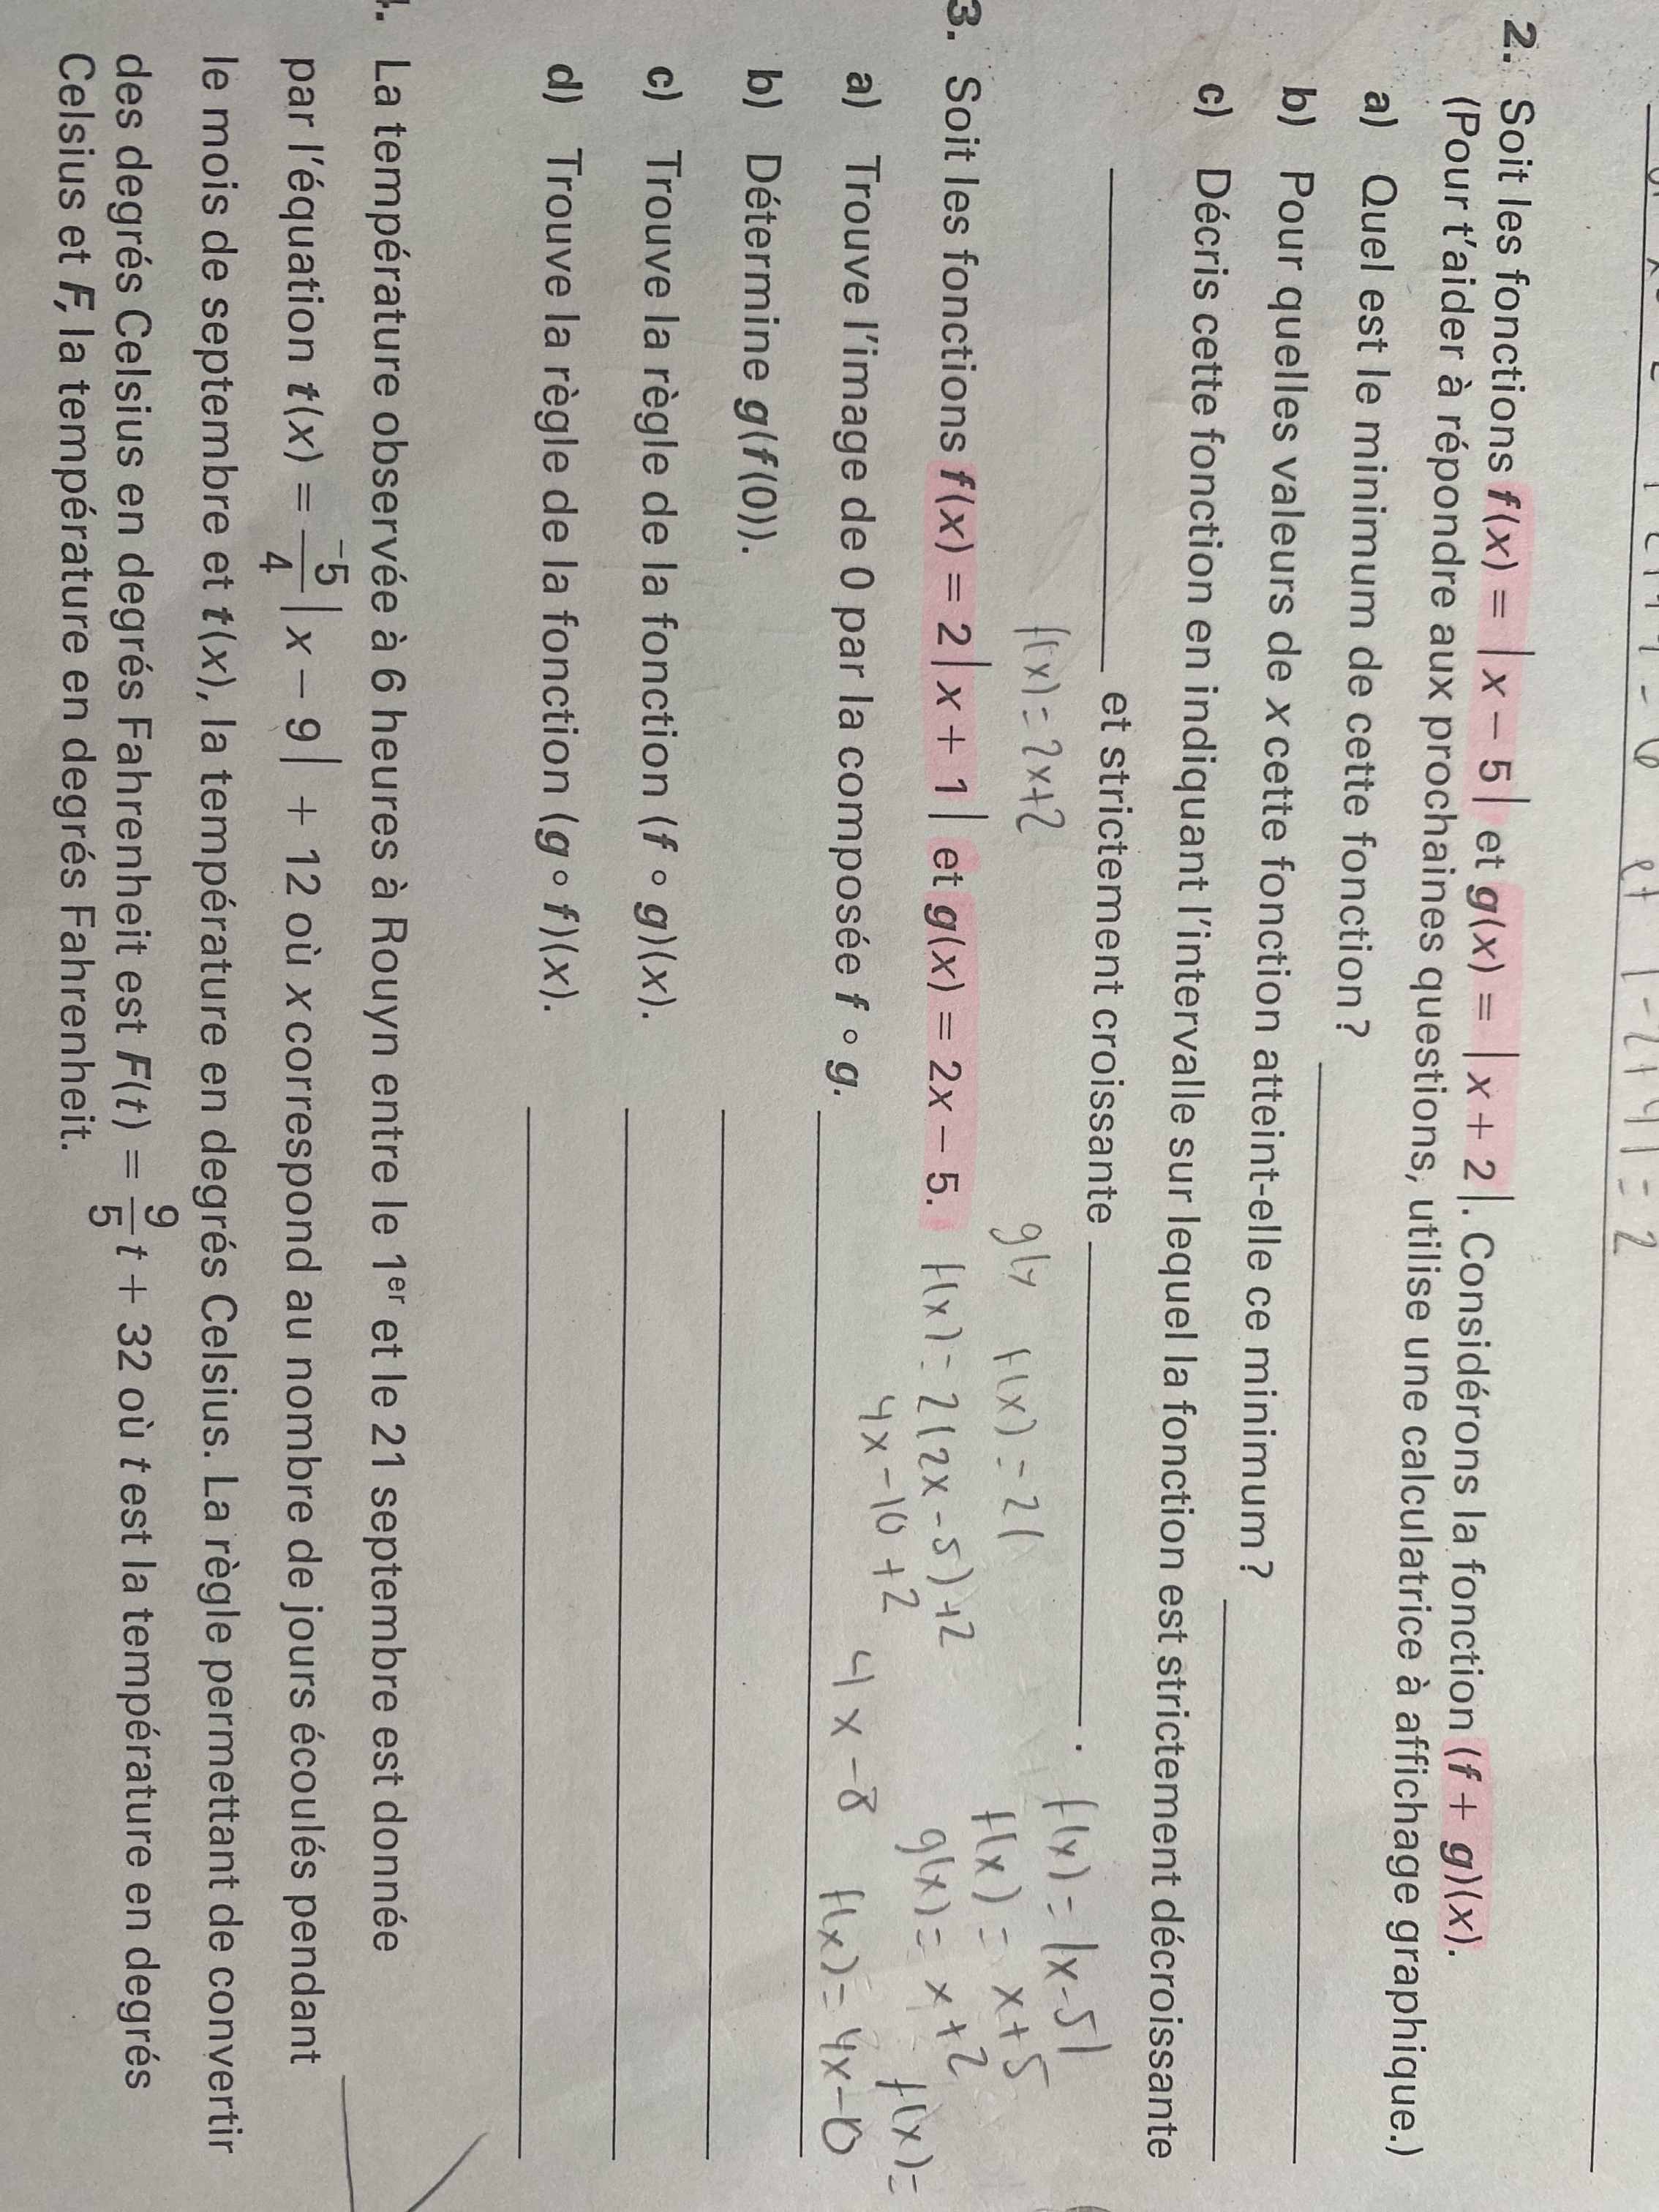 2. Soit les fonctions f(x) = |x − 5| et g(x) = |x + 2|. Considérons la fonction (f + g)(x).
(Pour t'aider à répondre aux prochaines questions, utilise une calculatrice à affichage graphique.)
a) Quel est le minimum de cette fonction?
b) Pour quelles valeurs de x cette fonction atteint-elle ce minimum?
c) Décris cette fonction en indiquant l'intervalle sur lequel la fonction est strictement décroissante
et strictement croissante .
f(x) = |x-5|
f(x) = 2x+2
g(x f(x) = 2(
f(x) = x+5
3. Soit les fonctions f(x) = 2|x + 1| et g(x) = 2x − 5.
f(x) = 2(2x-5)+2
g(x) = x+2
4x-10+2
f(x)=
a) Trouve l'image de 0 par la composée f ∘ g.
4x-8
f(x)= 4x-10
b) Détermine g(f(0)).
c) Trouve la règle de la fonction (f ∘ g)(x).
d) Trouve la règle de la fonction (g ∘ f)(x).
La température observée à 6 heures à Rouyn entre le 1er et le 21 septembre est donnée
par l'équation t(x) = -5/4 |x − 9| + 12 où x correspond au nombre de jours écoulés pendant
le mois de septembre et t(x), la température en degrés Celsius. La règle permettant de convertir
des degrés Celsius en degrés Fahrenheit est F(t) = 9/5 t + 32 où t est la température en degrés
Celsius et F, la température en degrés Fahrenheit.